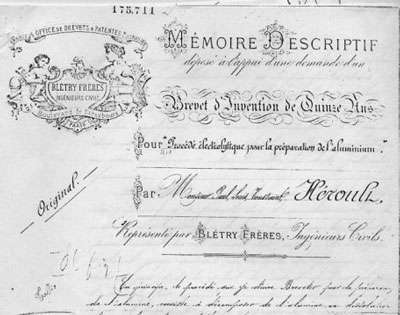 175.711
OFFICE DE BREVETS & PATENTES
BLÉTRY FRÈRES
INGÉNIEURS CIVILS
PARIS
MÉMOIRE DESCRIPTIF
déposé à l'appui d'une demande d'un
Brevet d'Invention de Quinze Ans
Pour "Procédé électrolytique pour la préparation de l'aluminium."
Original.
Par Monsieur Paul, Louis, Toussaint Héroult,
Représenté par BLÉTRY FRÈRES, Ingénieurs Civils.
En principe, le procédé que je désire Breveter pour la
de l'alumine, consiste à décomposer de l'alumine en dissolution